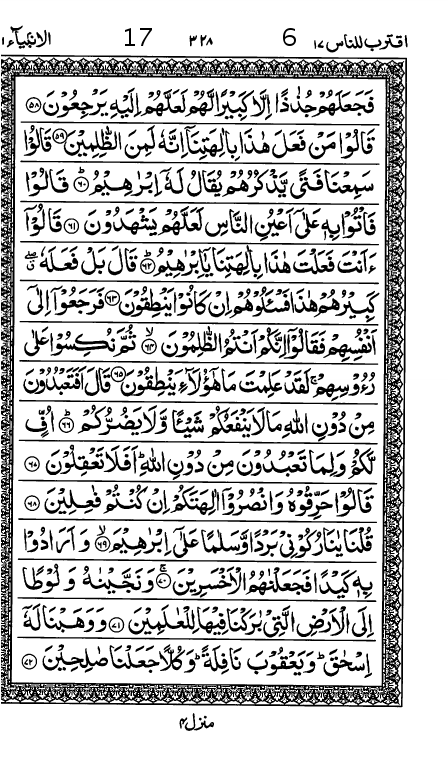 اقترب للناس ۱۷ 6 ۳۲۸ 17 الانبیآء
فَجَعَلَهُمْ جُذٰذًا اِلَّا كَبِيْرًا لَّهُمْ لَعَلَّهُمْ اِلَيْهِ يَرْجِعُوْنَ ۵۸
قَالُوْا مَنْ فَعَلَ هٰذَا بِاٰلِهَتِنَاۤ اِنَّهٗ لَمِنَ الظّٰلِمِيْنَ ۵۹ قَالُوْا
سَمِعْنَا فَتًى يَّذْكُرُهُمْ يُقَالُ لَهٗۤ اِبْرٰهِيْمُ ؕ ۶۰ قَالُوْا
فَاْتُوْا بِهٖ عَلٰۤى اَعْيُنِ النَّاسِ لَعَلَّهُمْ يَشْهَدُوْنَ ۶۱ قَالُوْۤا
ءَاَنْتَ فَعَلْتَ هٰذَا بِاٰلِهَتِنَا يٰۤاِبْرٰهِيْمُ ؕ ۶۲ قَالَ بَلْ فَعَلَهٗ
كَبِيْرُهُمْ هٰذَا فَسْـَٔلُوْهُمْ اِنْ كَانُوْا يَنْطِقُوْنَ ۶۳ فَرَجَعُوْۤا اِلٰۤى
اَنْفُسِهِمْ فَقَالُوْۤا اِنَّكُمْ اَنْتُمُ الظّٰلِمُوْنَ ۙ ۶۴ ثُمَّ نُكِسُوْا عَلٰى
رُءُوْسِهِمْ ۚ لَقَدْ عَلِمْتَ مَا هٰۤؤُلَآءِ يَنْطِقُوْنَ ۶۵ قَالَ اَفَتَعْبُدُوْنَ
مِنْ دُوْنِ اللّٰهِ مَا لَا يَنْفَعُكُمْ شَيْـًٔا وَّلَا يَضُرُّكُمْ ؕ ۶۶ اُفٍّ
لَّكُمْ وَلِمَا تَعْبُدُوْنَ مِنْ دُوْنِ اللّٰهِ ؕ اَفَلَا تَعْقِلُوْنَ ۶۷
قَالُوْا حَرِّقُوْهُ وَانْصُرُوْۤا اٰلِهَتَكُمْ اِنْ كُنْتُمْ فٰعِلِيْنَ ۶۸
قُلْنَا يٰنَارُ كُوْنِيْ بَرْدًا وَّسَلٰمًا عَلٰۤى اِبْرٰهِيْمَ ۙ ۶۹ وَاَرَادُوْا
بِهٖ كَيْدًا فَجَعَلْنٰهُمُ الْاَخْسَرِيْنَ ۚ ۷۰ وَنَجَّيْنٰهُ وَلُوْطًا
اِلَى الْاَرْضِ الَّتِيْ بٰرَكْنَا فِيْهَا لِلْعٰلَمِيْنَ ۷۱ وَوَهَبْنَا لَهٗۤ
اِسْحٰقَ ؕ وَيَعْقُوْبَ نَافِلَةً ؕ وَكُلًّا جَعَلْنَا صٰلِحِيْنَ ۷۲
منزل ۴